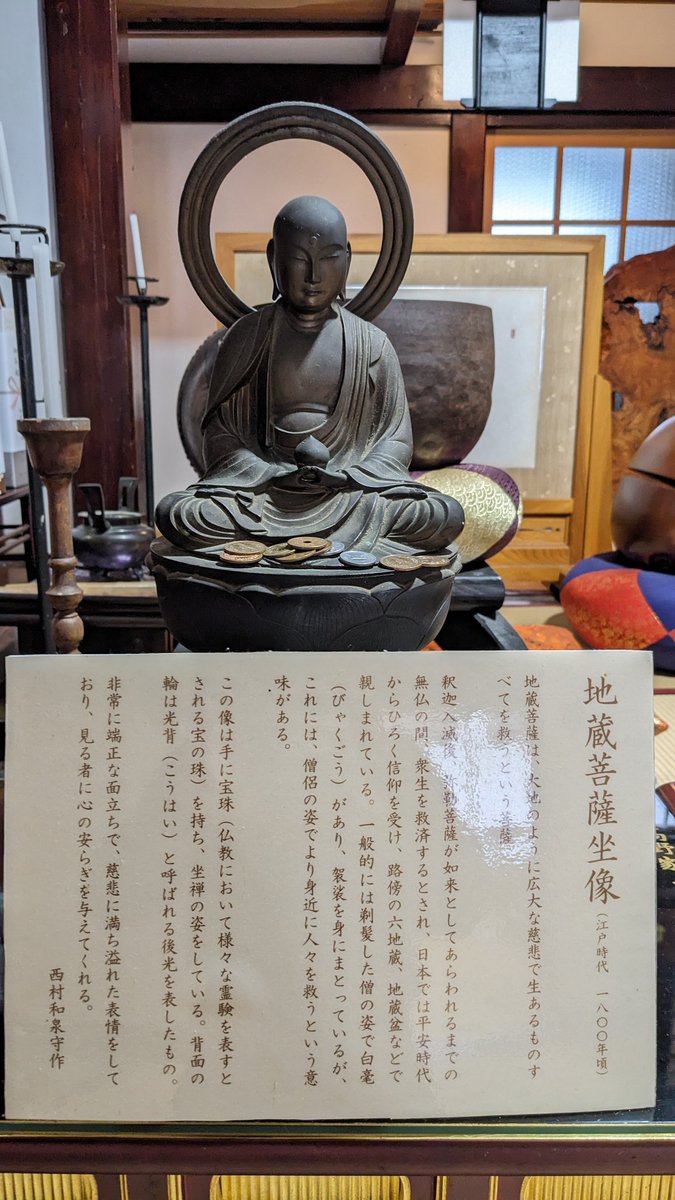 地蔵菩薩坐像（江戸時代　一八〇〇年頃）
地蔵菩薩は、大地のように広大な慈悲で生あるものす
べてを救うという菩薩。
釈迦入滅後、弥勒菩薩が如来としてあらわれるまでの
無仏の間、衆生を救済するとされ、日本では平安時代
からひろく信仰を受け、路傍の六地蔵、地蔵盆などで
親しまれている。一般的には剃髪した僧の姿で白毫
（びゃくごう）があり、袈裟を身にまとっているが、
これには、僧侶の姿でより身近に人々を救うという意
味がある。
この像は手に宝珠（仏教において様々な霊験を表すと
される宝の珠）を持ち、坐禅の姿をしている。背面の
輪は光背（こうはい）と呼ばれる後光を表したもの。
非常に端正な面立ちで、慈悲に満ち溢れた表情をして
おり、見る者に心の安らぎを与えてくれる。
西村和泉守作